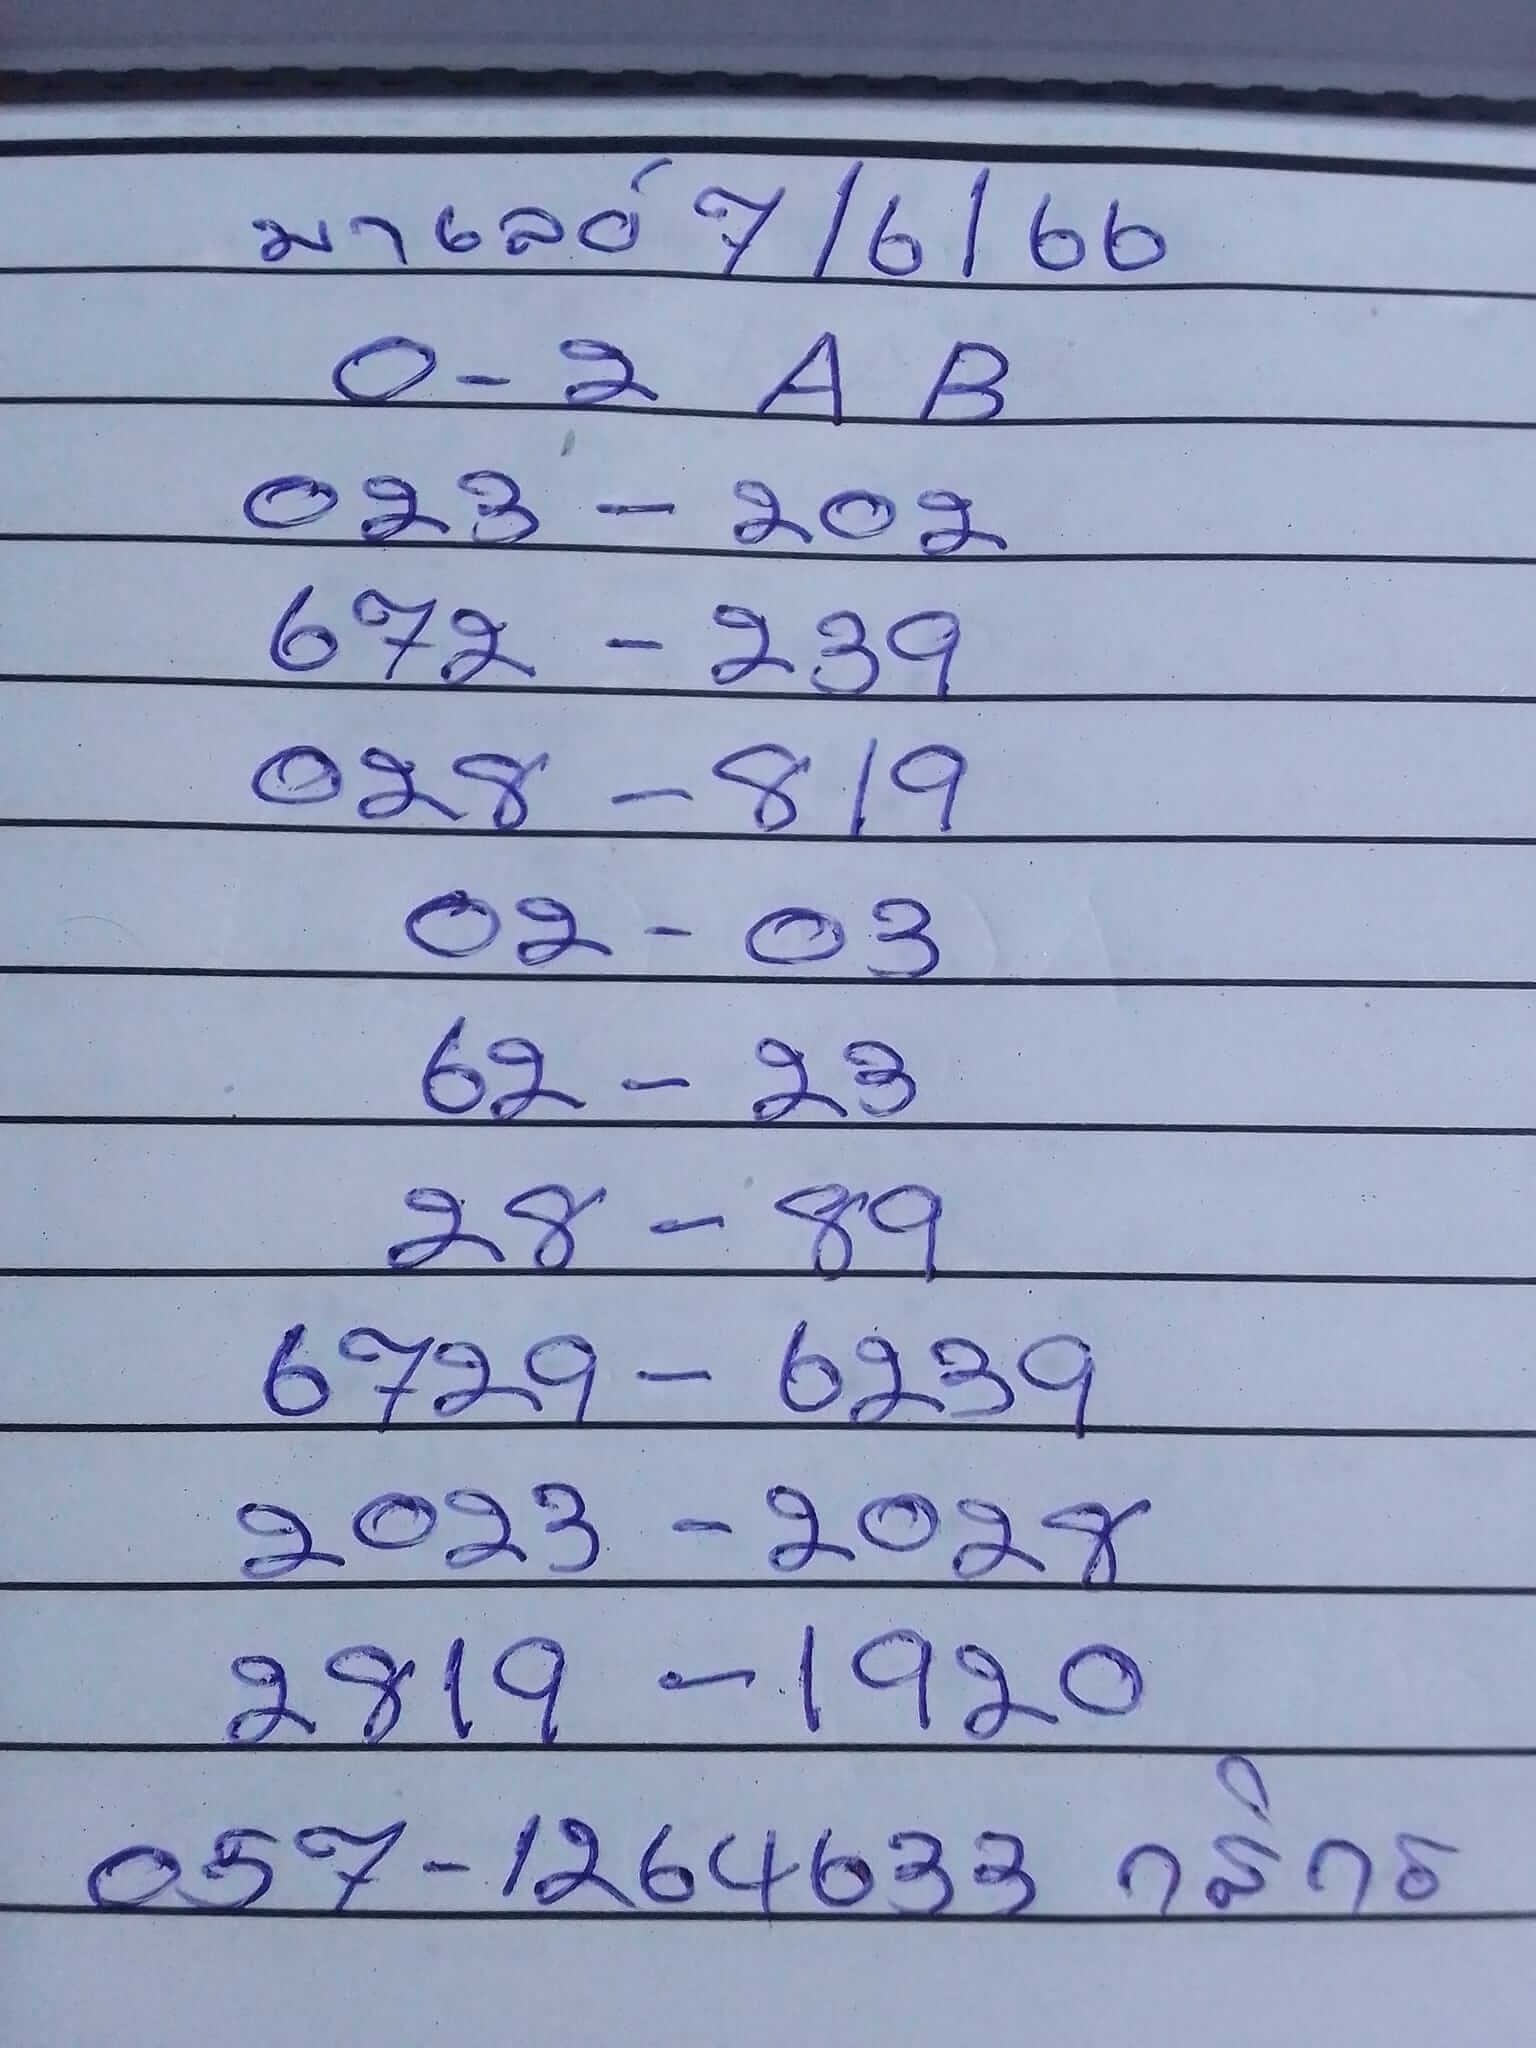 มาเลย์ 7/6/66
0-2 A B
023 - 202
672 - 239
028 - 819
02 - 03
62 - 23
28 - 89
6729 - 6239
2023 - 2028
2819 - 1920
057-1264633 กสิกร